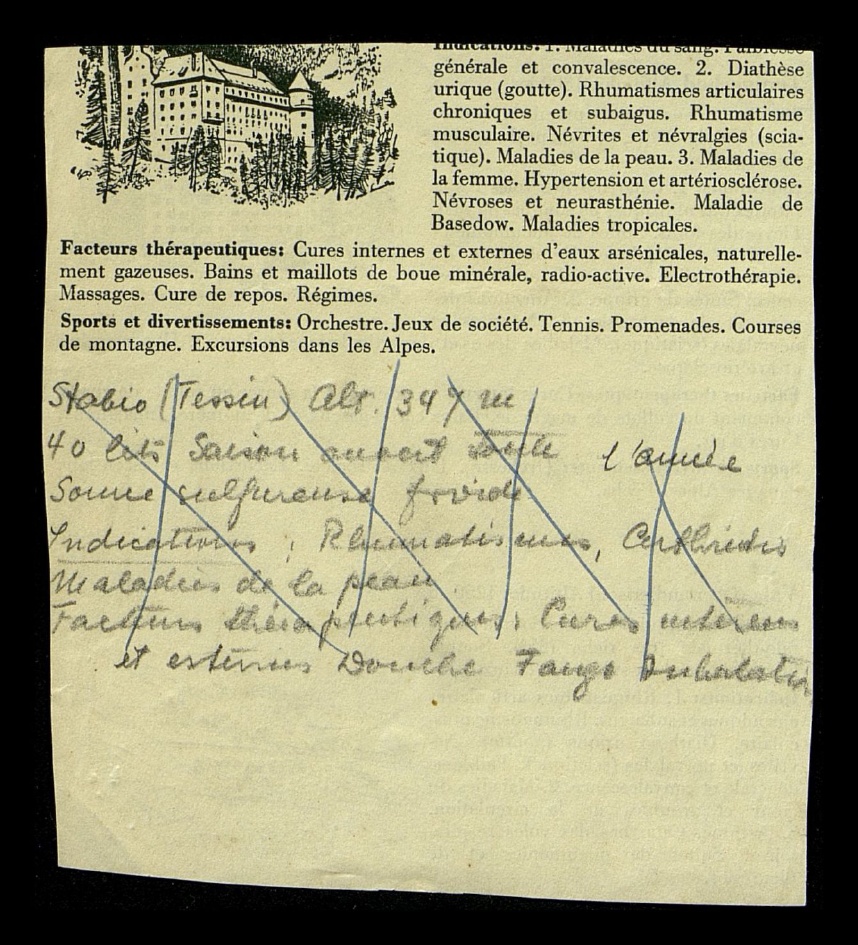 Indications: 1. Maladies du sang. Faiblesse
générale et convalescence. 2. Diathèse
urique (goutte). Rhumatismes articulaires
chroniques et subaigus. Rhumatisme
musculaire. Névrites et névralgies (scia-
tique). Maladies de la peau. 3. Maladies de
la femme. Hypertension et artériosclérose.
Névroses et neurasthénie. Maladie de
Basedow. Maladies tropicales.
Facteurs thérapeutiques: Cures internes et externes d'eaux arsénicales, naturelle-
ment gazeuses. Bains et maillots de boue minérale, radio-active. Electrothérapie.
Massages. Cure de repos. Régimes.
Sports et divertissements: Orchestre. Jeux de société. Tennis. Promenades. Courses
de montagne. Excursions dans les Alpes.
Stabio (Tessin) Alt. 347 m
40 lits Saison ouvert toute l'année
Source sulfureuse froide
Indications: Rhumatismes,
Maladies de la peau
Facteurs thérapeutiques: Cures internes
et externes Douche Fango Inhalation